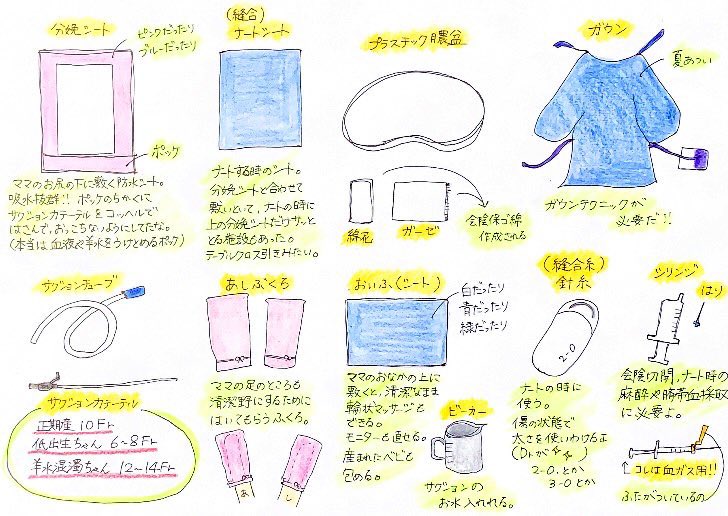 分娩シート
ピンクだったり
ブルーだったり
ポッケ
ママのお尻の下に敷く防水シート。
吸水抜群!! ポッケのちかくに
サクションカテーテルをコッヘルで
はさんで、おっこちないようにしてたな。
(本当は血液や羊水をうけとめるポッケ)
(縫合)
ナートシート
ナートする時のシート。
分娩シートと合わせて
敷いといて、ナートの時に
上の分娩シートだけサッと
とる施設もあった。
テーブルクロス引きみたい。
プラスチック膿盆
綿花
ガーゼ
会陰保ゴ綿
作成される
ガウン
夏あつい
ガウンテクニックが
必要だ!!
サクションチューブ
サクションカテーテル
正期産 10Fr
低出生ちゃん 6~8Fr
羊水混濁ちゃん 12~14Fr
あしぶくろ
ママの足のところも
清潔野にするために
はいてもらうふくろ。
あ
し
おいふ(シート)
白だったり
青だったり
緑だったり
ママのおなかの上に
敷くと、清潔なまま
輪状マッサージも
できる。
モニターも直せる。
産まれたベビも
包める。
ビーカー
サクションの
お水入れれる。
(縫合糸)
針糸
2-0
ナートの時に
使う。
傷の状態で
太さを使いわけるよ
(Dr.が)
2-0.とか
3-0とか
シリンジ
はり
会陰切開、ナート時の
麻酔や臍帯血採取
に必要よ。
↑コレは血ガス用!!
ふたがついているの